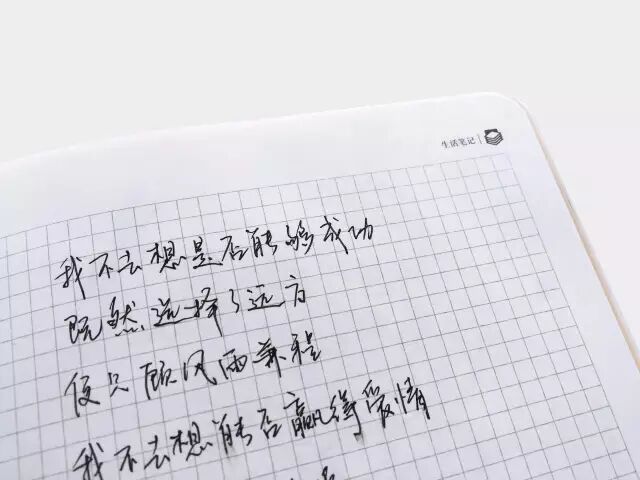 生活笔记
我不去想是否能够成功
既然选择了远方
便只顾风雨兼程
我不去想能否赢得爱情